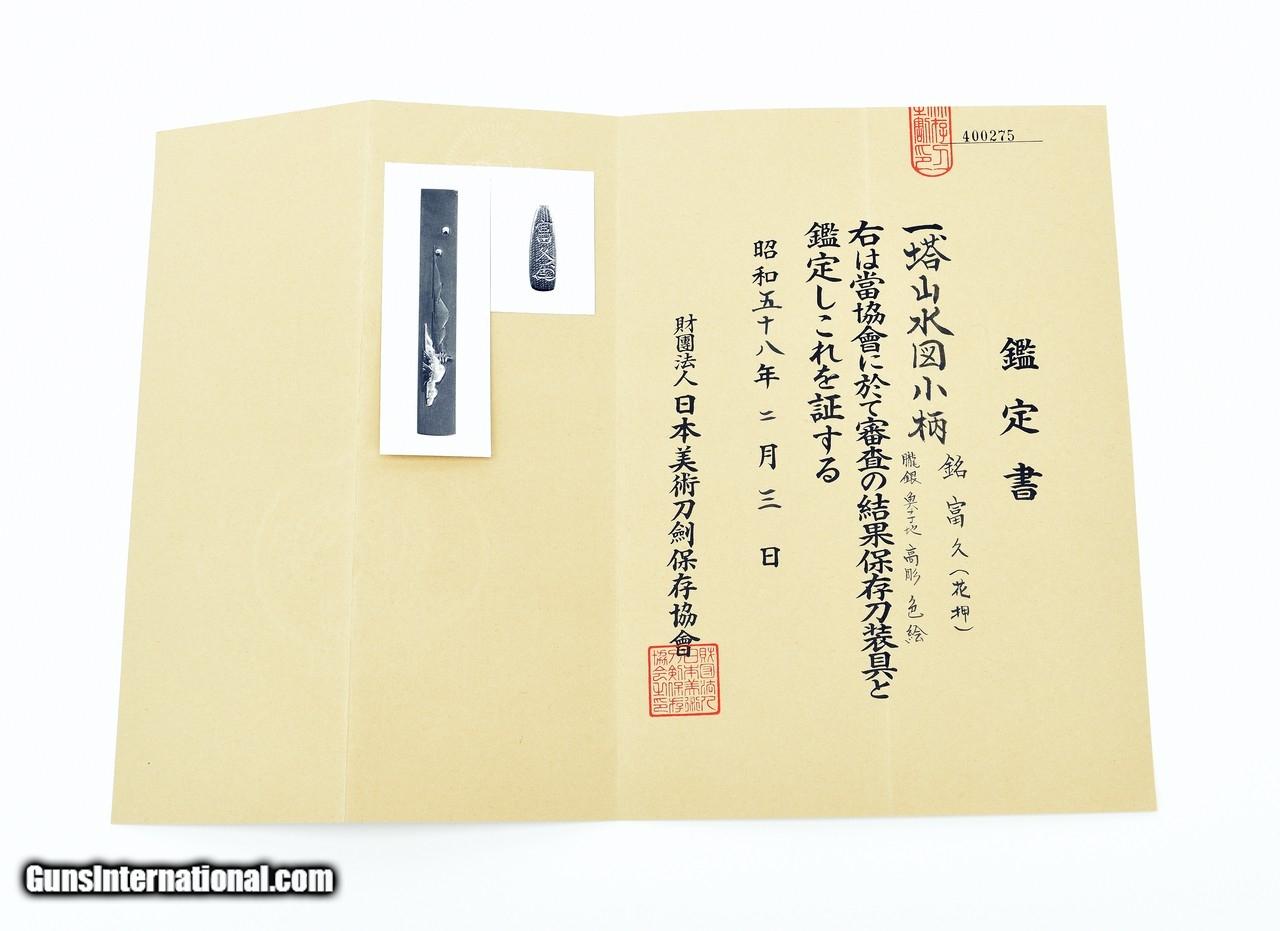 400275
鑑定書
一塔山水図小柄
銘 富久(花押)
朧銀 魚子地 高彫 色絵
右は當協會に於て審査の結果保存刀装具と
鑑定しこれを証する
昭和五十八年二月三日
財團法人日本美術刀劍保存協會
財団法人
日本美術
刀剣保存
協会之印
富久
GunsInternational.com